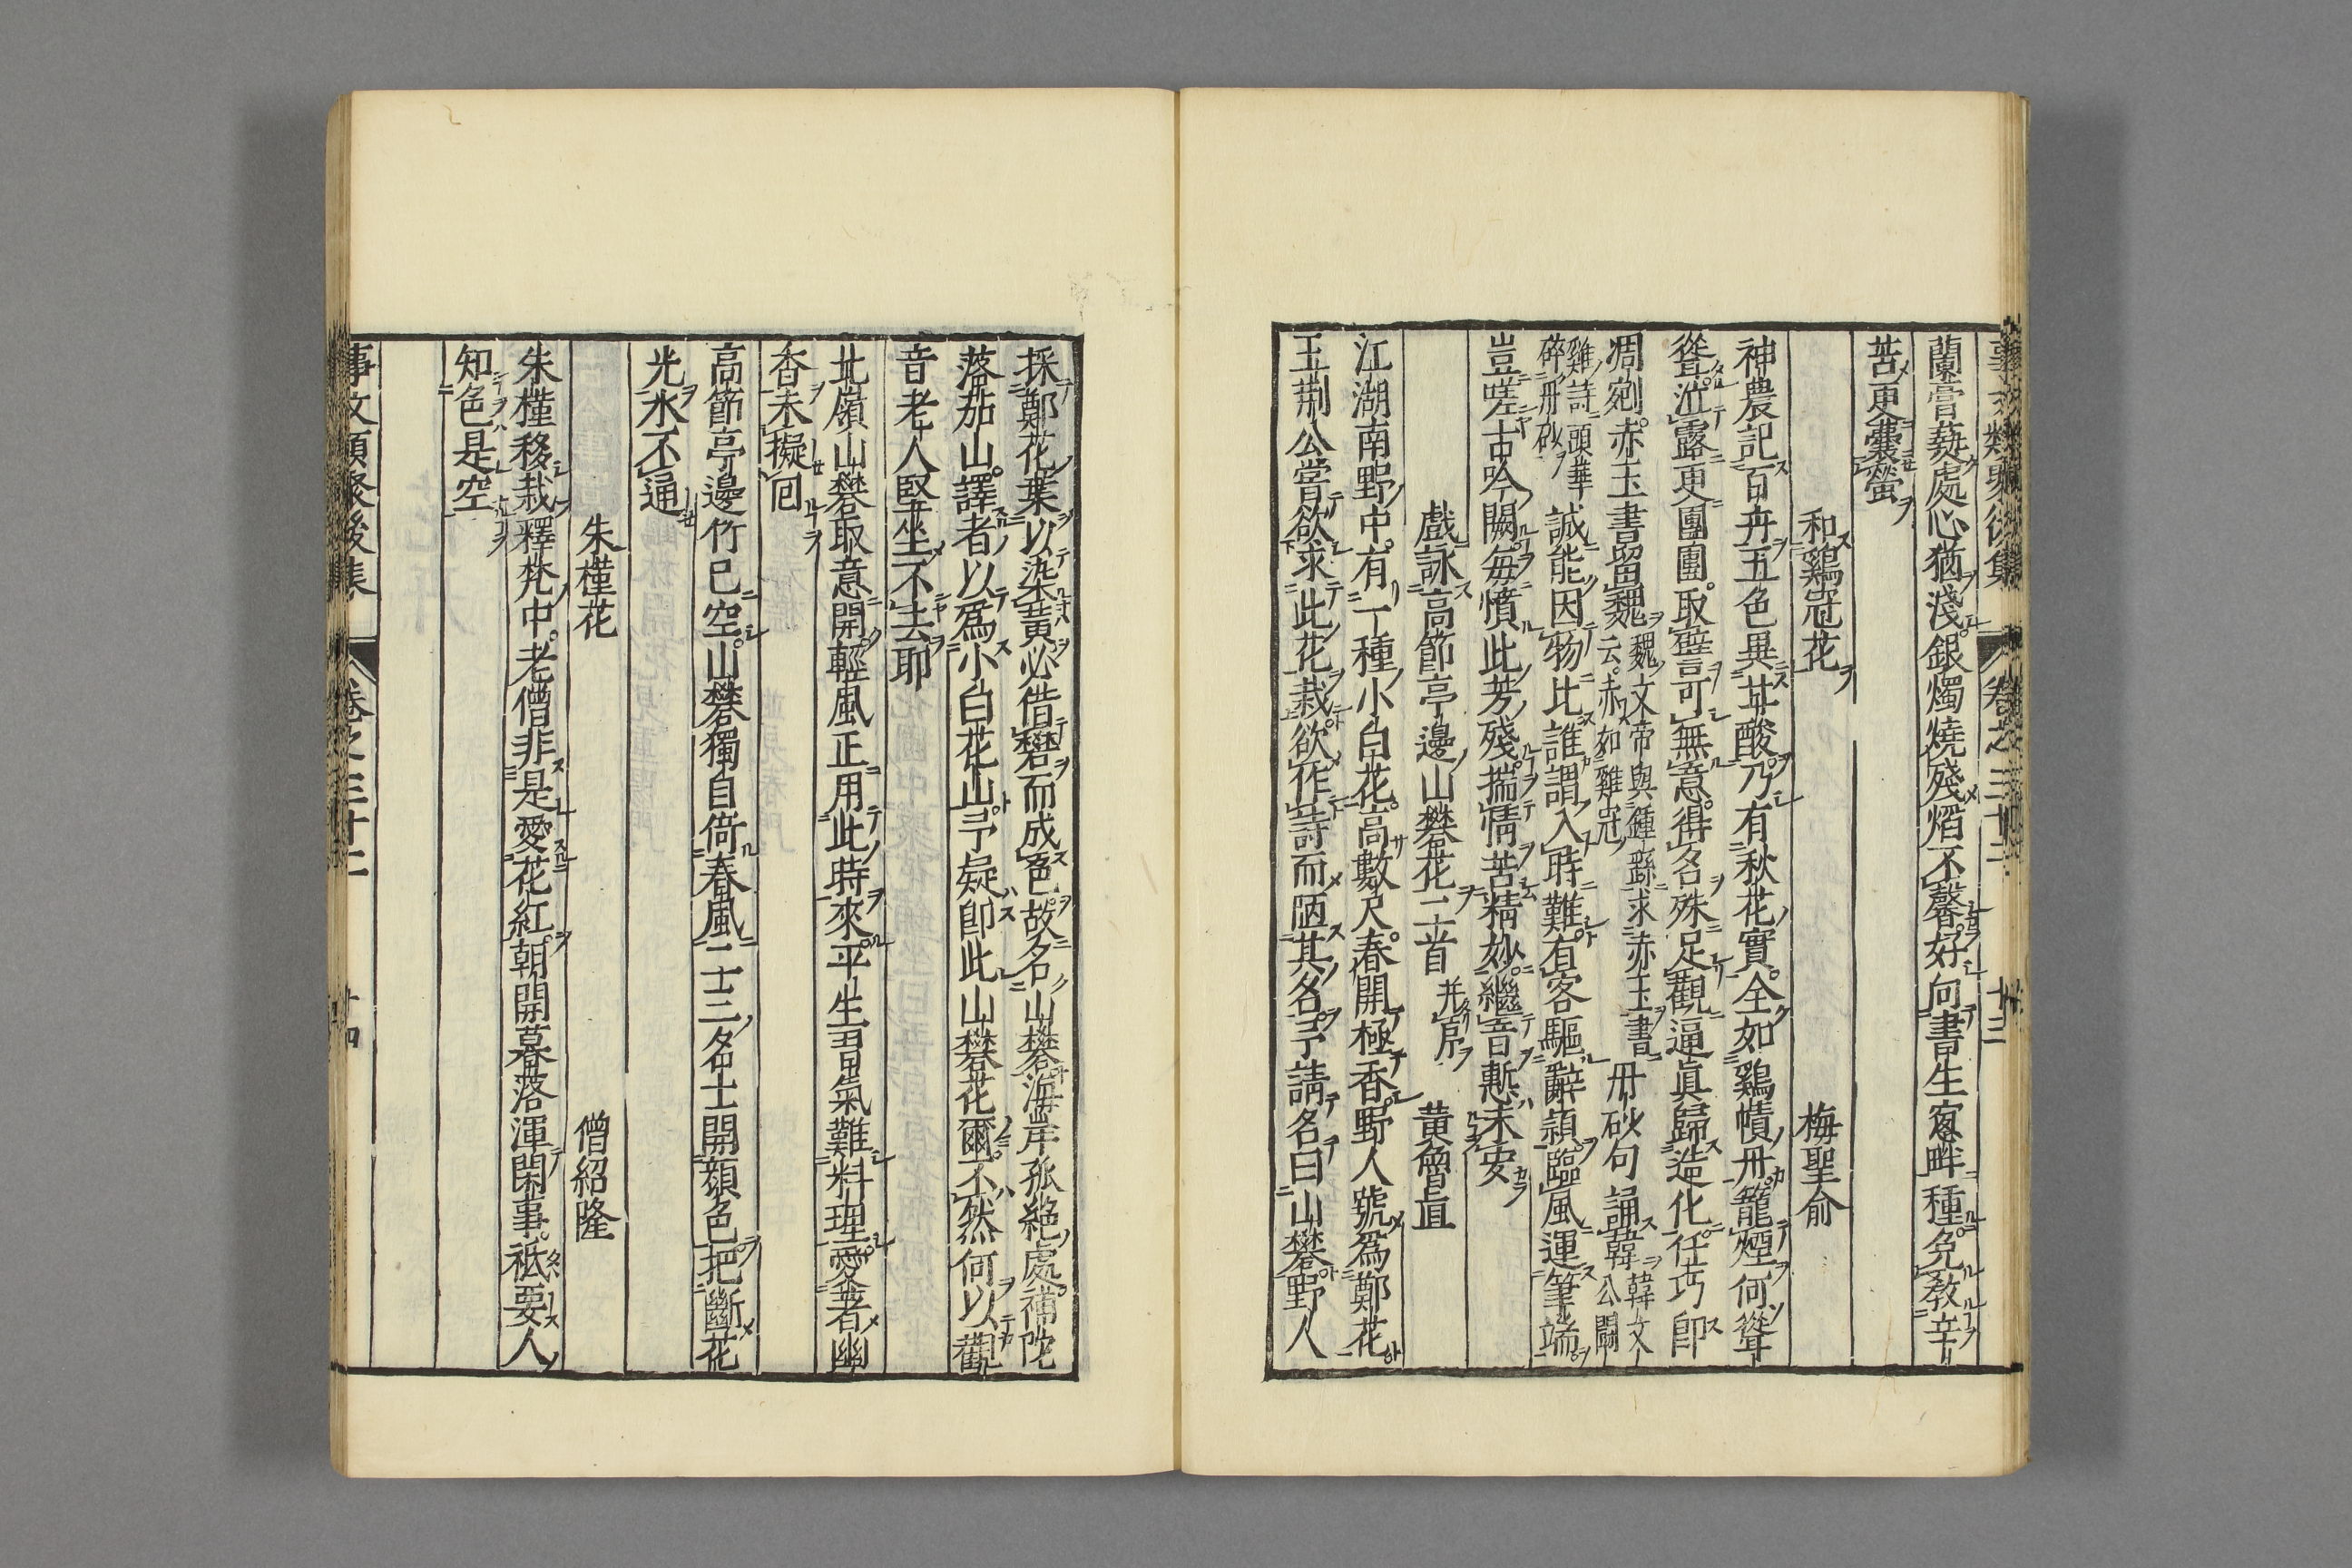 蘭膏爇處心猶淺銀燭燒殘焰不馨好向書生窓畔種免敎辛
苦更囊螢
和鷄冠花 梅聖俞
神農記百卉五色異甘酸乃有秋花實全如鷄幘丹籠煙何聳
聳泣露更團團取譬可無意得名殊足觀逼眞歸造化任巧卽
凋剜赤玉書留魏 魏文帝與鍾繇求赤玉書
云赤如雞冠 丹砂句誦韓 韓文公鬭
雞詩頭華
碎丹砂 誠能因物比誰謂入時難有客驅辭穎臨風運筆端
豈嗟古吟闕每憤此芳殘揣情苦精妙繼音慙未安
戲詠高節亭邊山礬花二首 并序 黃魯直
江湖南野中有一種小白花高數尺春開極香野人號爲鄭花
王荆公嘗欲求此花栽欲作詩而陋其名予請名曰山礬野人
採鄭花葉以染黃必借礬而成色故名山礬海岸孤絶處補陀
落茄山譯者以爲小白花山予疑卽此山礬花爾不然何以觀
音老人堅坐不去耶
北嶺山礬取意開輕風正用此時來平生習氣難料理愛著幽
香未擬囘
高節亭邊竹已空山礬獨自倚春風二士三名士開顏色把斷花
光水不通
朱槿花 僧紹隆
朱槿移栽釋梵中老僧非是愛花紅朝開暮落渾閑事祗要人
知色是空
事文類聚後集 卷之三十二 十四